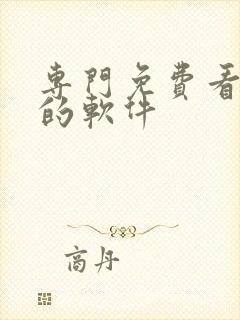 專門免費看
的軟件
商丹